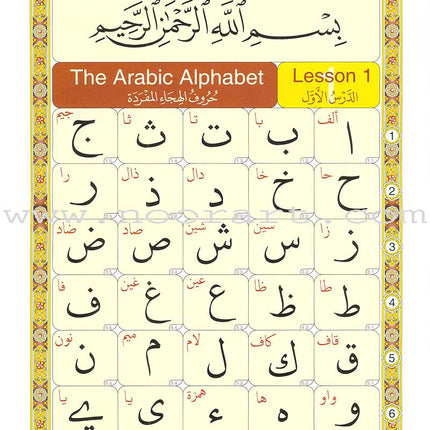 بِسْمِ اللَّهِ الرَّحْمَٰنِ الرَّحِيمِ
The Arabic Alphabet Lesson 1
الدَّرْسُ الأَوَّل حُرُوفُ الهِجَاءِ المُفْرَدَة
ألف با تا ثا جيم
ا ب ت ث ج 1
حا خا دال ذال را
ح خ د ذ ر 2
www.noorart.com
زا سين شين صاد ضاد
ز س ش ص ض 3
طا ظا عين غين فا
ط ظ ع غ ف 4
قاف كاف لام ميم نون
ق ك ل م ن 5
واو ها همزة يا يا
و ه ء ي ے 6